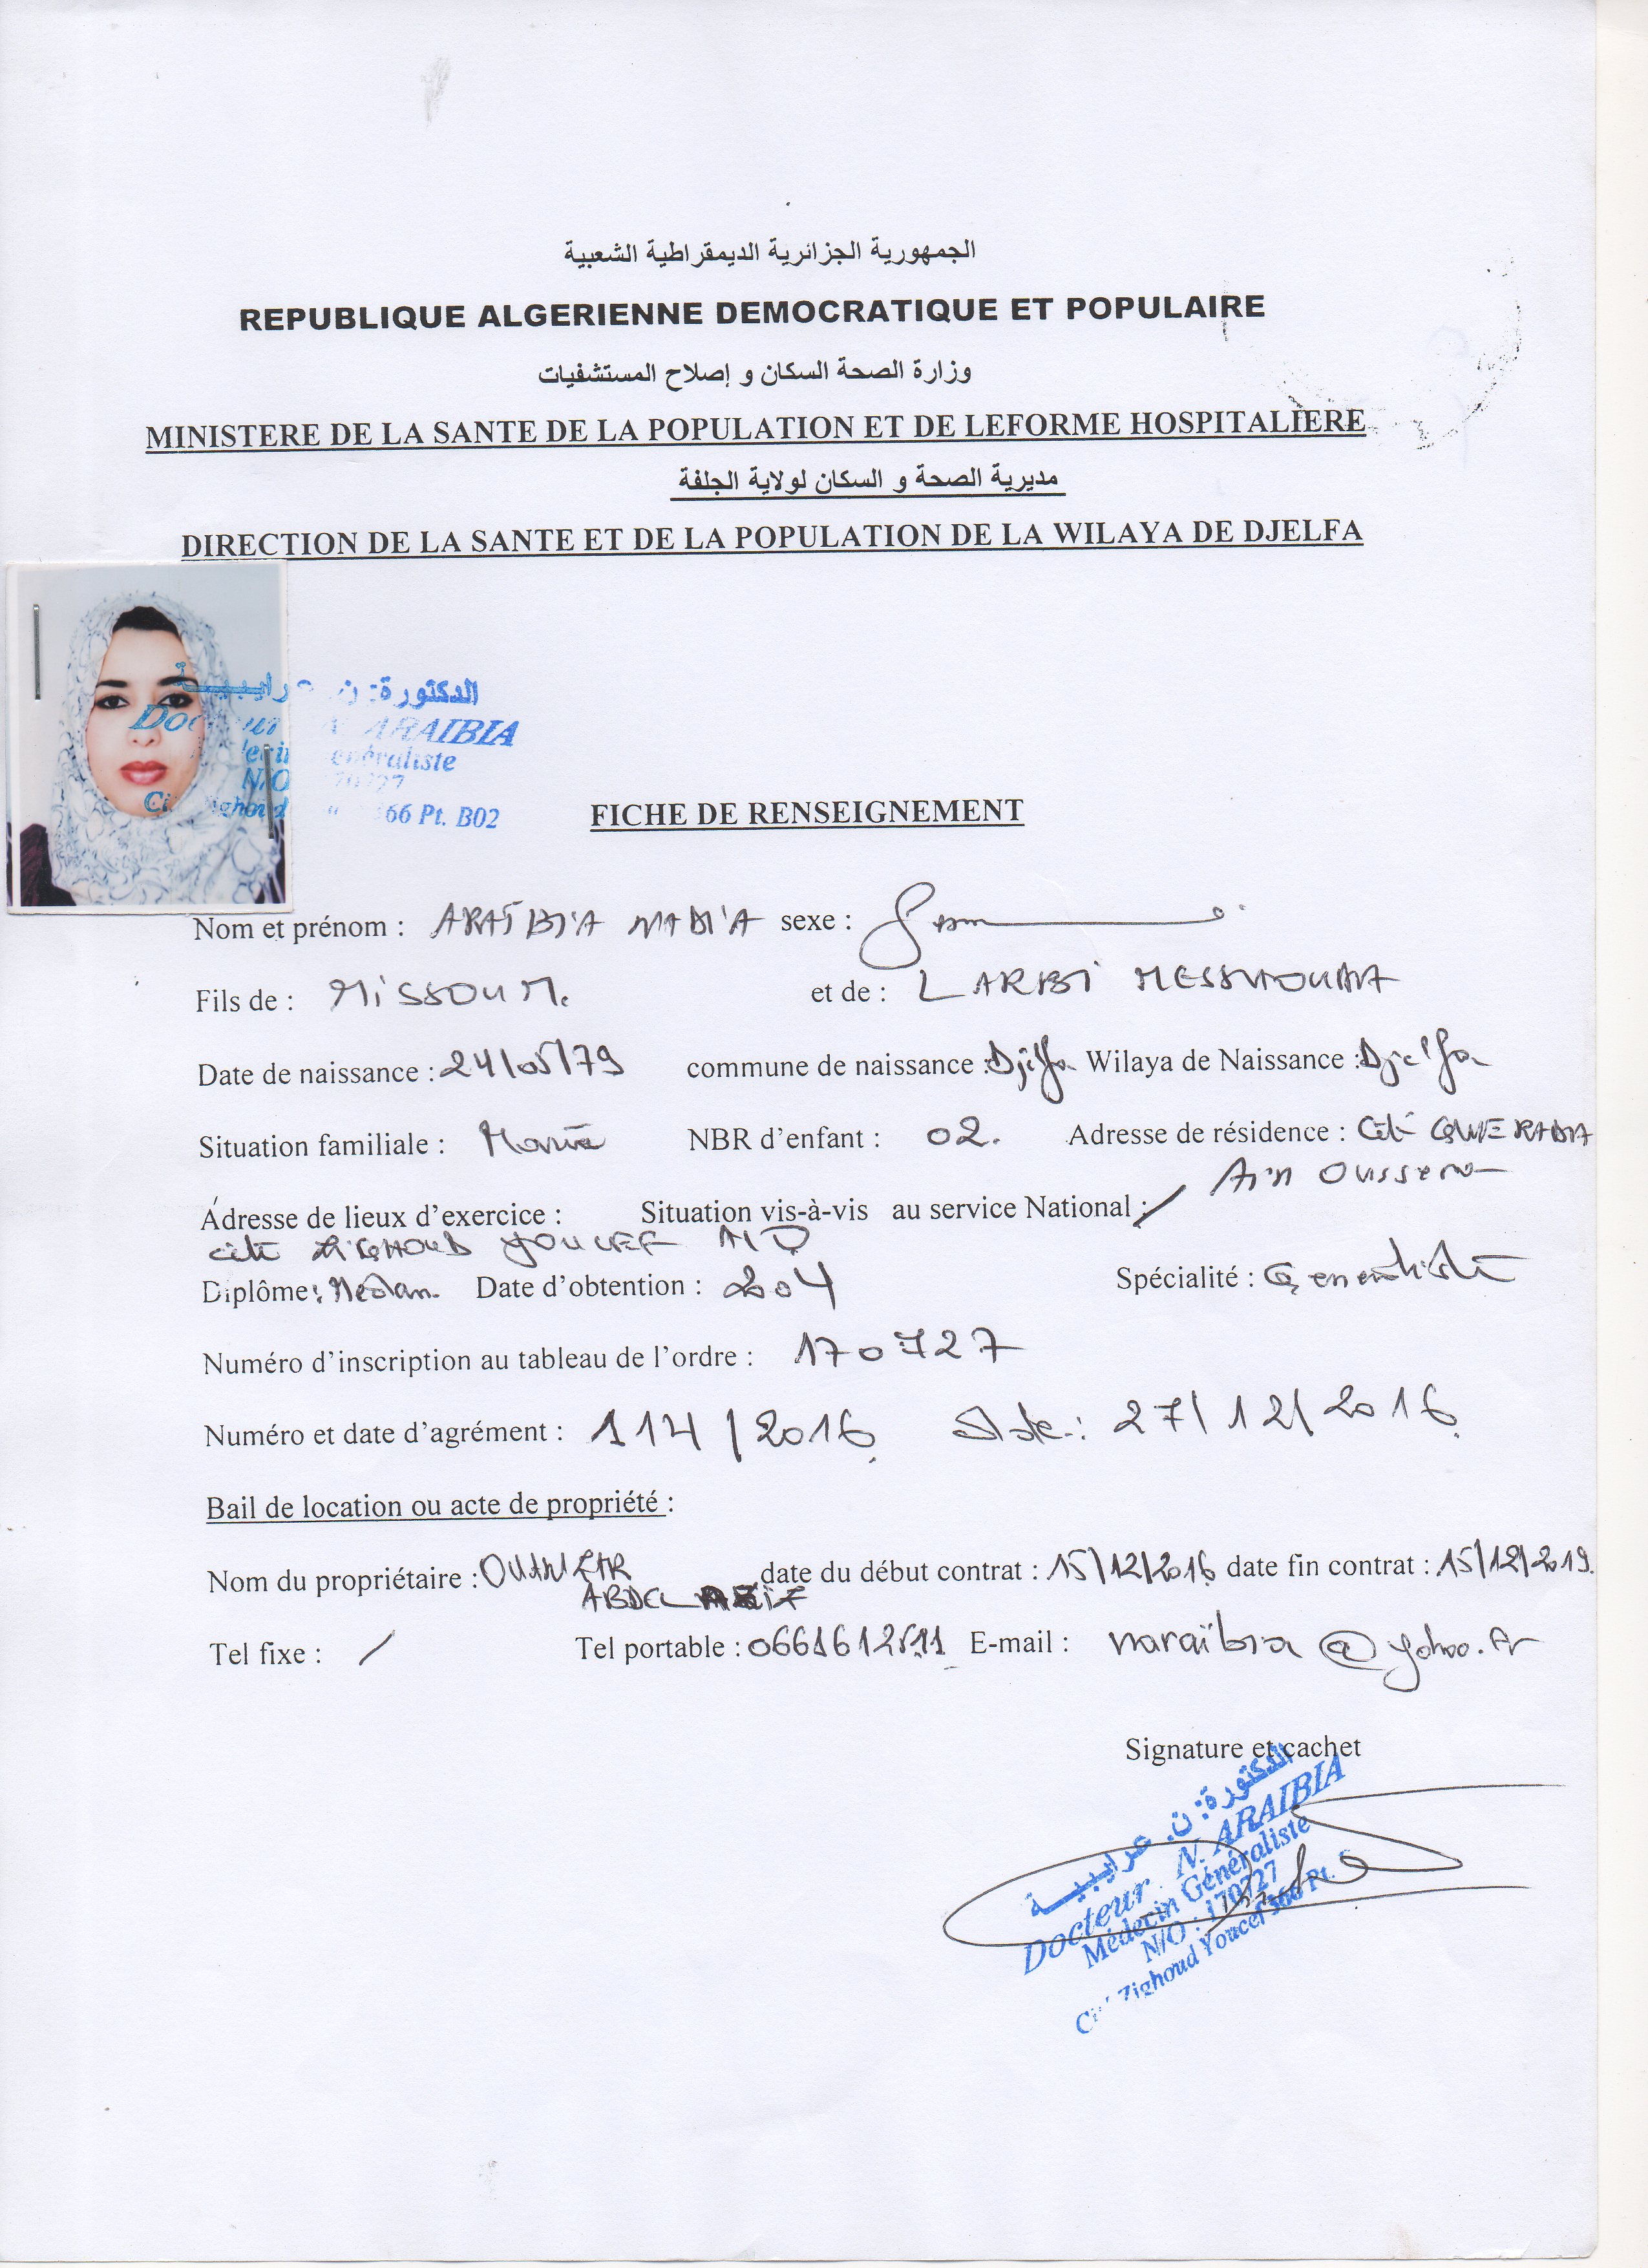 الجمهورية الجزائرية الديمقراطية الشعبية
REPUBLIQUE ALGERIENNE DEMOCRATIQUE ET POPULAIRE
وزارة الصحة السكان و إصلاح المستشفيات
MINISTERE DE LA SANTE DE LA POPULATION ET DE LEFORME HOSPITALIERE
مديرية الصحة و السكان لولاية الجلفة
DIRECTION DE LA SANTE ET DE LA POPULATION DE LA WILAYA DE DJELFA
الدكتورة: ن. عرايبية
Docteur N. ARAIBIA
Généraliste
N/O 170727
66 Pt. B02
FICHE DE RENSEIGNEMENT
Nom et prénom : ARAÏBIA NADIA sexe :
Fils de : MISSOUM. et de : LARBI MESSAOUDA
Date de naissance : 24/05/79 commune de naissance : Djelfa Wilaya de Naissance : Djelfa
Situation familiale : Mariée NBR d'enfant : 02. Adresse de résidence : Cité
Ain Oussera
Adresse de lieux d'exercice : Situation vis-à-vis au service National : /
cité ZIGHOUD YOUCEF
Diplôme : Date d'obtention : 2004 Spécialité : Generaliste
Numéro d'inscription au tableau de l'ordre : 170727
Numéro et date d'agrément : 114/2016 date : 27/12/2016
Bail de location ou acte de propriété :
Nom du propriétaire : date du début contrat : 15/12/2016 date fin contrat : 15/12/2019.
ABDEL
Tel fixe : / Tel portable : E-mail : naraïbia@yahoo.fr
Signature et cachet
الدكتورة: ن. عرايبية
Docteur N. ARAIBIA
Médecin Généraliste
N/O : 170727
Cité Zighoud Youcef 366 Pt.